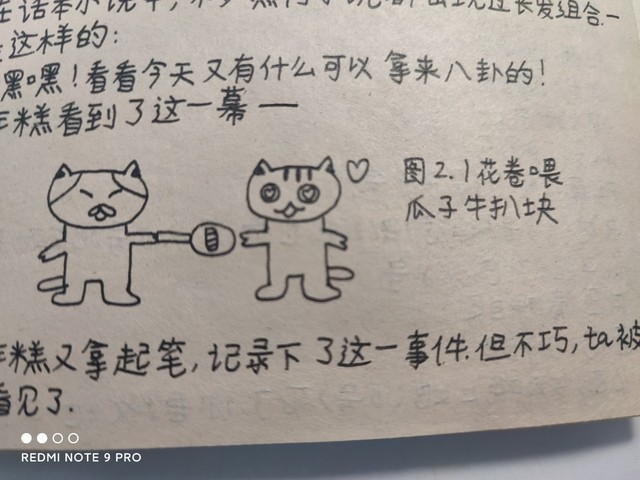 这样的:
嘿嘿!看看今天又有什么可以拿来八卦的!
年糕看到了这一幕—
图2.1花卷喂
瓜子牛扒块
年糕又拿起笔,记录下了这一事件.但不巧,ta被
看见了.
REDMI NOTE 9 PRO